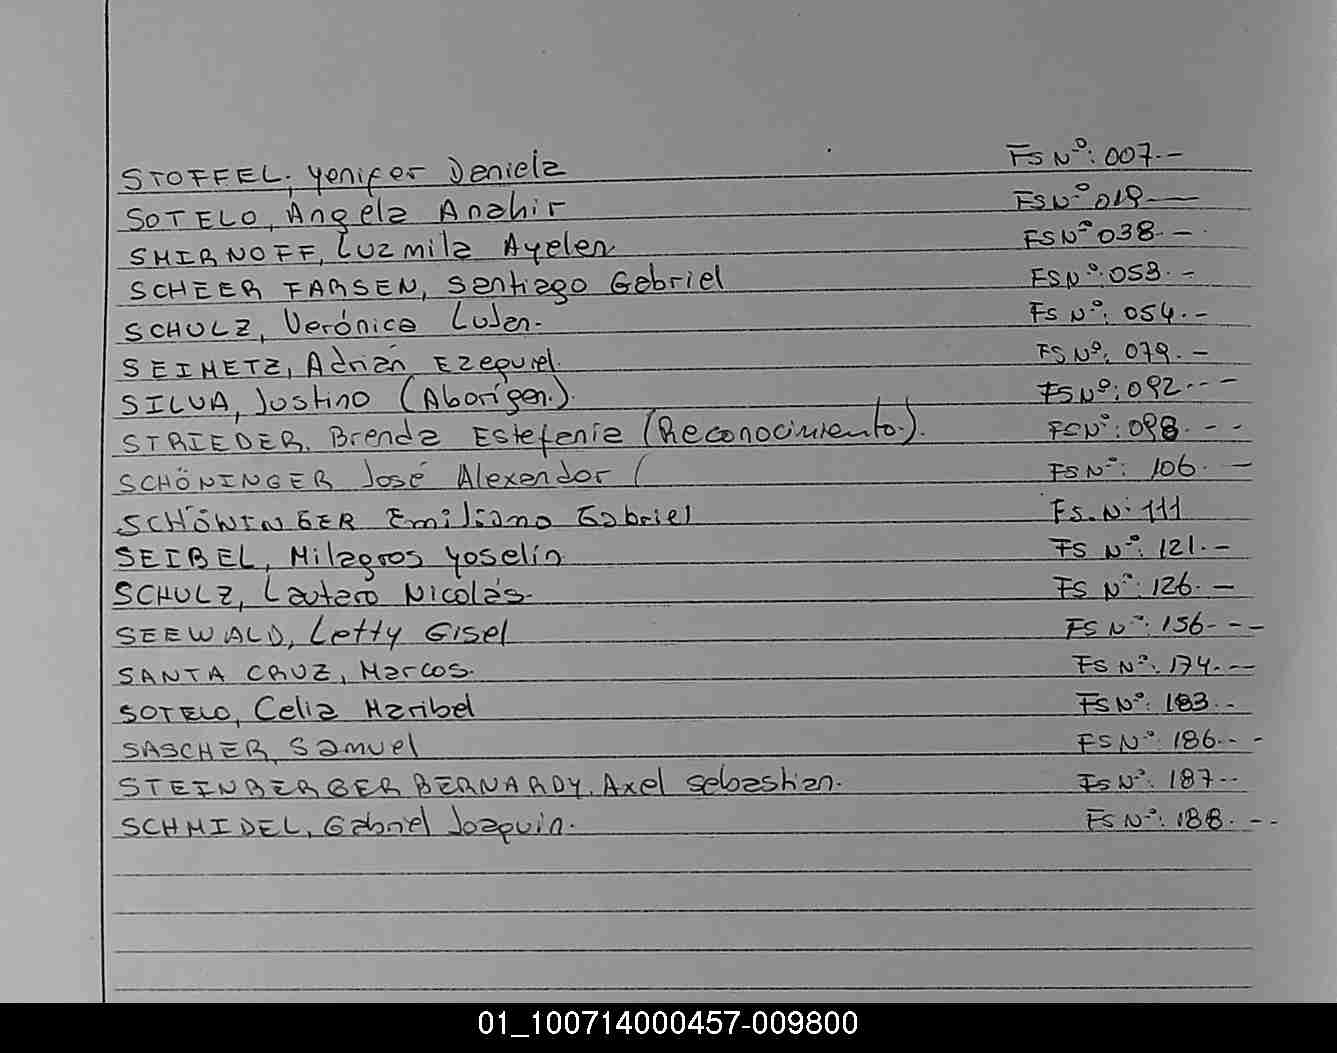 STOFFEL, Yenifer Daniela FS Nº: 007.-
SOTELO, Ángela Anahir FS Nº 019—
SMIRNOFF, Luzmila Ayelen FS Nº 038.-
SCHEER FARSEN, Santiago Gabriel FS Nº: 053.-
SCHULZ, Verónica Lujan.- FS Nº: 054.-
SEIMETZ, Adrián Ezequiel. FS Nº: 079.-
SILVA, Justino (Aborigen.). FS Nº: 092.--
STRIEDER, Brenda Estefania (Reconocimiento.). FS Nº: 098.--
SCHÖNINGER José Alexandor ( FS Nº: 106.-
SCHÖNINGER Emiliano Gabriel Fs. N: 111
SEIBEL, Milagros Yoselin. FS Nº: 121.-
SCHULZ, Lautaro Nicolás.- FS Nº: 126.-
SEEWALD, Letty Gisel FS Nº: 156.--
SANTA CRUZ, Marcos. FS Nº: 174.--
SOTELO, Celia Maribel FS Nº: 183.-
SASCHER, Samuel FS Nº: 186.--
STEINBERGER BERNARDY, Axel Sebastian. FS Nº: 187.--
SCHMIDEL, Gabriel Joaquin. FS Nº: 188.--
01_100714000457-009800